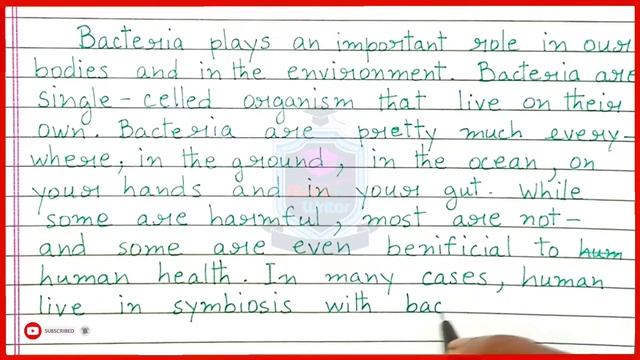 Bacteria plays an important role in our
bodies and in the environment. Bacteria are
single-celled organism that live on their
own. Bacteria are pretty much every-
where, in the ground, in the ocean, on
your hands and in your gut. While
some are harmful, most are not-
and some are even benificial to hum
human health. In many cases, human
live in symbiosis with bac
SUBSCRIBED